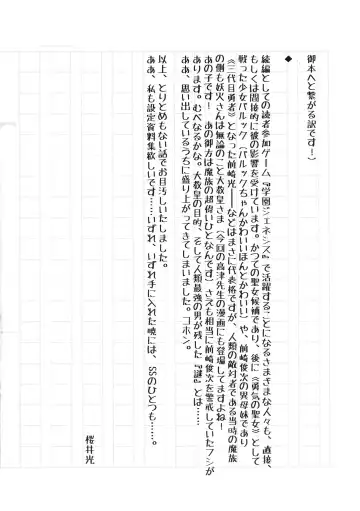 御本へと繋がる訳です!)
◆
続編としての読者参加ゲーム『学園ジェネシズ』で活躍することになるさまざまな人々も、直接、
もしくは間接的に彼の影響を受けています。かつての聖女候補であり、後に《勇気の聖女》として
戦った少女パルック(パルックちゃんかわいいほんとかわいい)や、前崎俊次の異母妹であり
《三代目勇者》となった前崎光――などはまさに代表格ですが、人類の敵対者である当時の魔族
の側も妖火さんは無論のこと大教皇さま(今回の高津先生の漫画にも登場してますよね!
あの子です!あの御方は魔族の超偉いひとなんです)さえも相当に前崎俊次を警戒していたフシが
あります。むべなるかな。大教皇の目的、そして人類最強の男が残した『謎』とは……
ああ、思い出しているうちに盛り上がってきてしまいました。コホン。
以上、とりとめもない話でお目汚しいたしました。
ああ、私も設定資料集欲しいです……いずれ、いずれ手に入れた暁には、SSのひとつも……。
桜井光